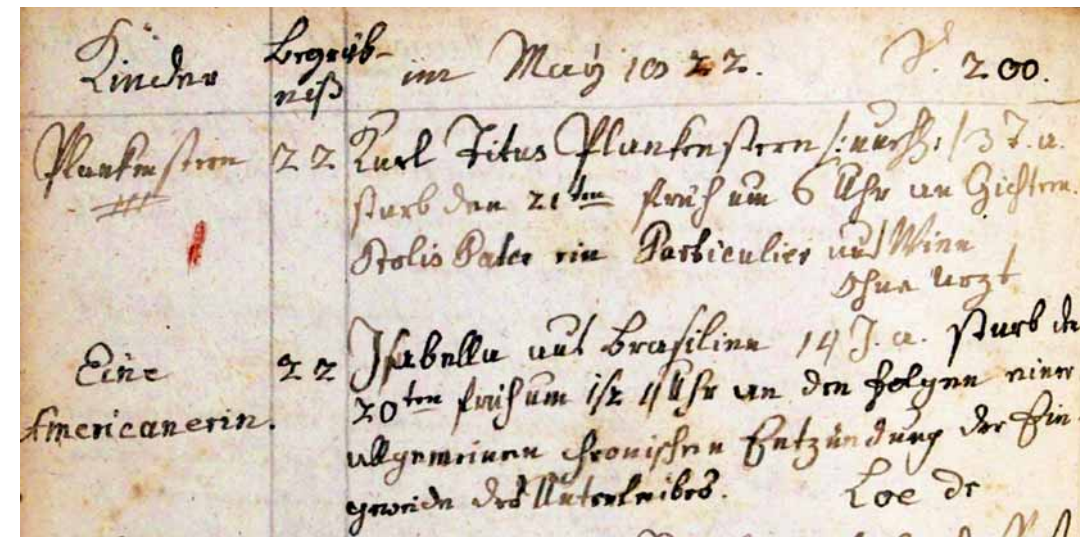 Kinder Begräb-
niß im May 1822. S. 200.
Plankenstern 22 Karl Titus Plankenstern 3 T. a.
starb den 21ten früh um 6 Uhr an Gichtern.
Prolis Pater ein Particulier aus Wien
Ohne Arzt
Eine 22 Isabella aus Brasilien 14 J. a. starb den
Americanerin. 20ten früh um 1/2 11 Uhr an den Folgen einer
allgemeinen chronischen Entzündung der Ein-
geweide des Unterleibes. Loe dr